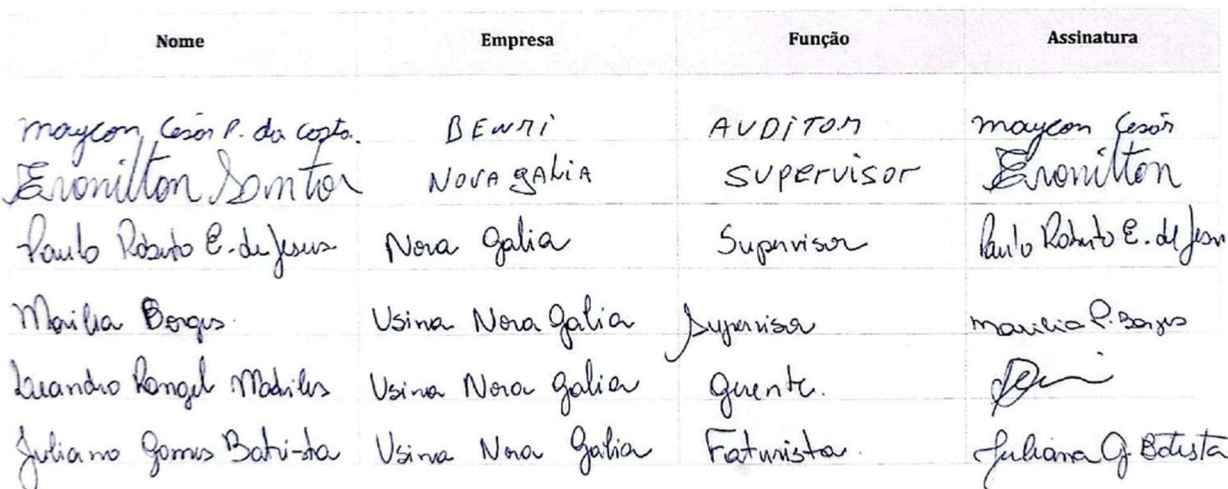 Nome Empresa Função Assinatura
Maycon Cesar P. da Costa. BENRI AUDITOR Maycon Cesar
Eronilton Santos NOVA GALIA SUPERVISOR Eronilton
Paulo Roberto E. de Jesus Nova Galia Supervisor Paulo Roberto E. de Jesus
Marilia Borges Usina Nova Galia Supervisor Marilia P. Borges
Leandro Rangel Usina Nova Galia Gerente.
Juliana Gomes Batista Usina Nova Galia Faturista Juliana G Batista